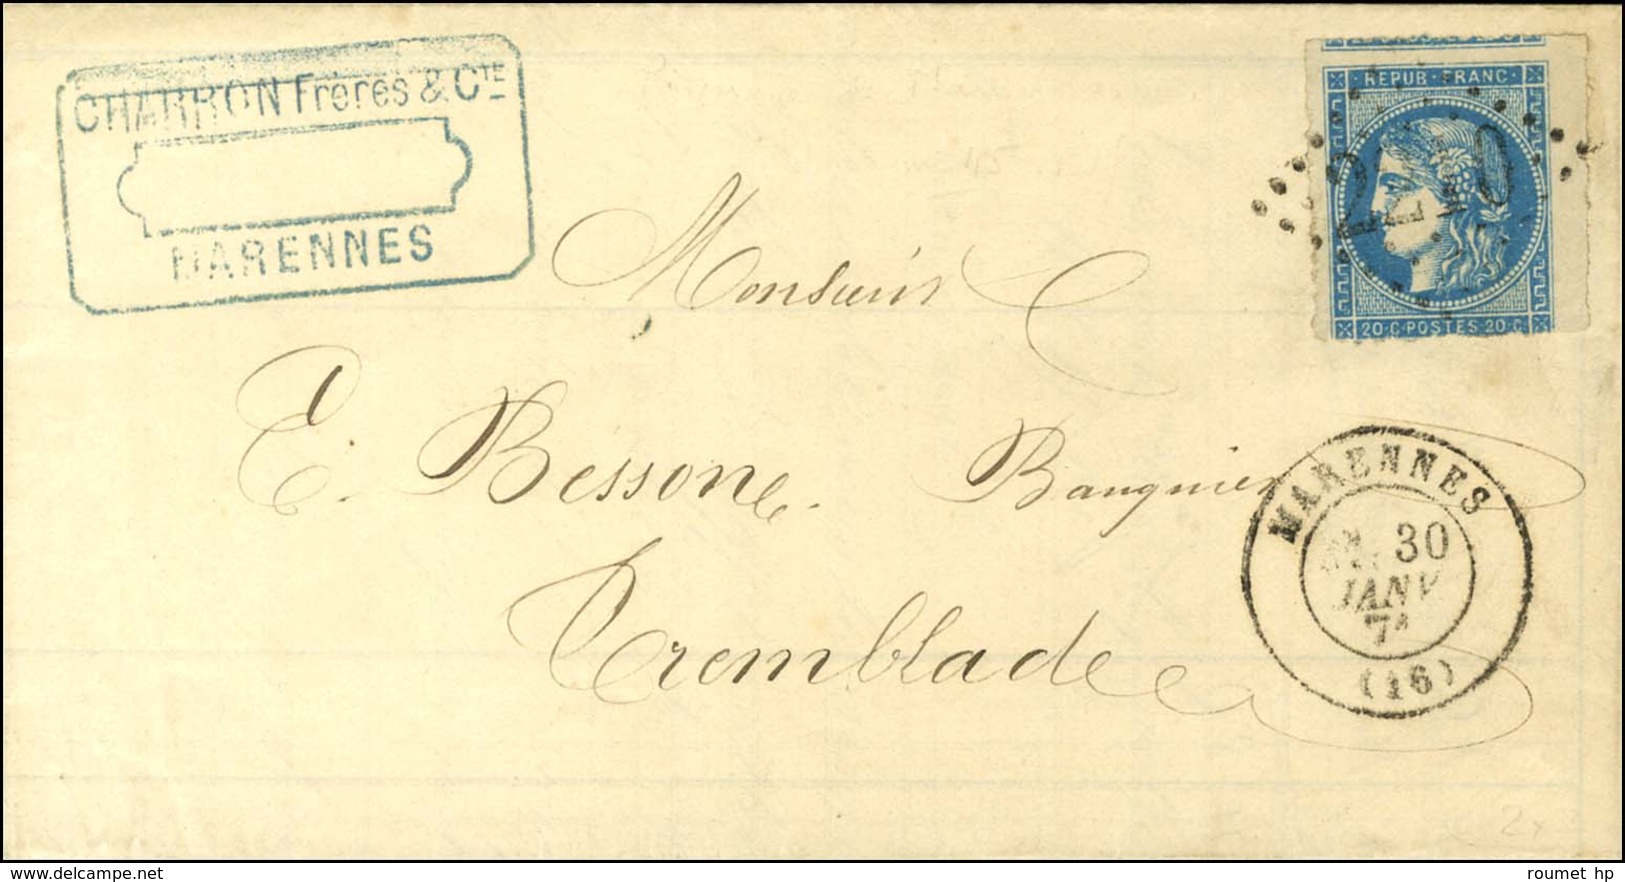 CHARRON Frères & CIE
MARENNES
REPUB·FRANC·
20·C·POSTES·20·C
Monsieur
E. Bessone. Banquier
Tremblade
MARENNES
30
JANV
(16)
2x
delcampe.net
roumet hp